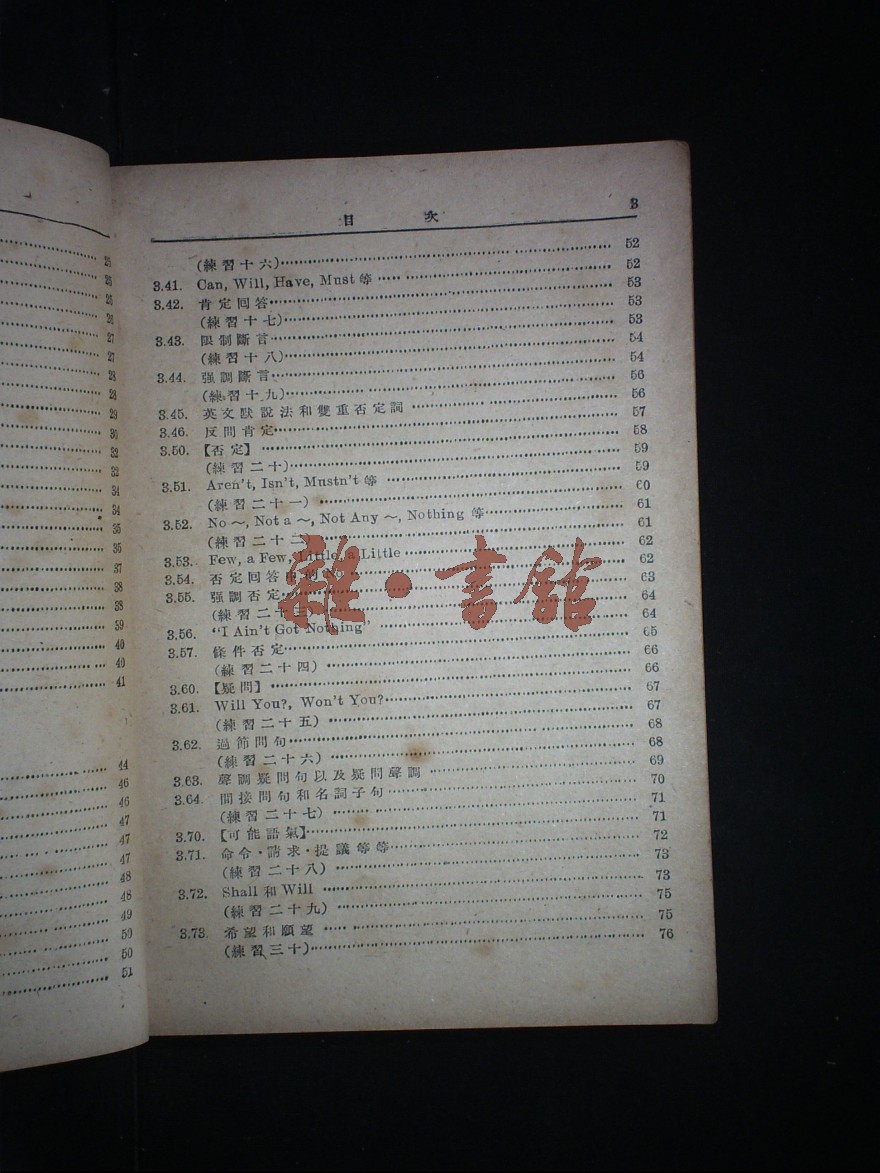 23
25
26
27
27
28
28
29
30
32
32
34
34
35
35
37
38
38
39
40
40
41
44
46
46
47
47
47
48
48
49
50
50
51
目 次 3
(練習十六) 52
3.41. Can, Will, Have, Must 等 52
3.42. 肯定回答 53
(練習十七) 53
3.43. 限制斷言 53
(練習十八) 54
3.44. 强調斷言 54
(練習十九) 56
3.45. 英文默說法和雙重否定詞 56
3.46. 反問肯定 57
3.50. 【否定】 58
(練習二十) 59
3.51. Aren't, Isn't, Mustn't 等 59
(練習二十一) 60
3.52. No ～, Not a ～, Not Any ～, Nothing 等 61
(練習二十二) 61
3.53. Few, a Few, Little, a Little 62
3.54. 否定回答中的 No 62
3.55. 强調否定 63
(練習二十三) 64
3.56. "I Ain't Got Nothing" 64
3.57. 條件否定 65
(練習二十四) 66
3.60. 【疑問】 66
3.61. Will You?, Won't You? 67
(練習二十五) 67
3.62. 過節問句 68
(練習二十六) 68
3.63. 聲調疑問句以及疑問聲調 69
3.64. 間接問句和名詞子句 70
(練習二十七) 71
3.70. 【可能語氣】 71
3.71. 命令·請求·提議等等 72
(練習二十八) 73
3.72. Shall 和 Will 73
(練習二十九) 75
3.73. 希望和願望 75
(練習三十) 76
雜·書館